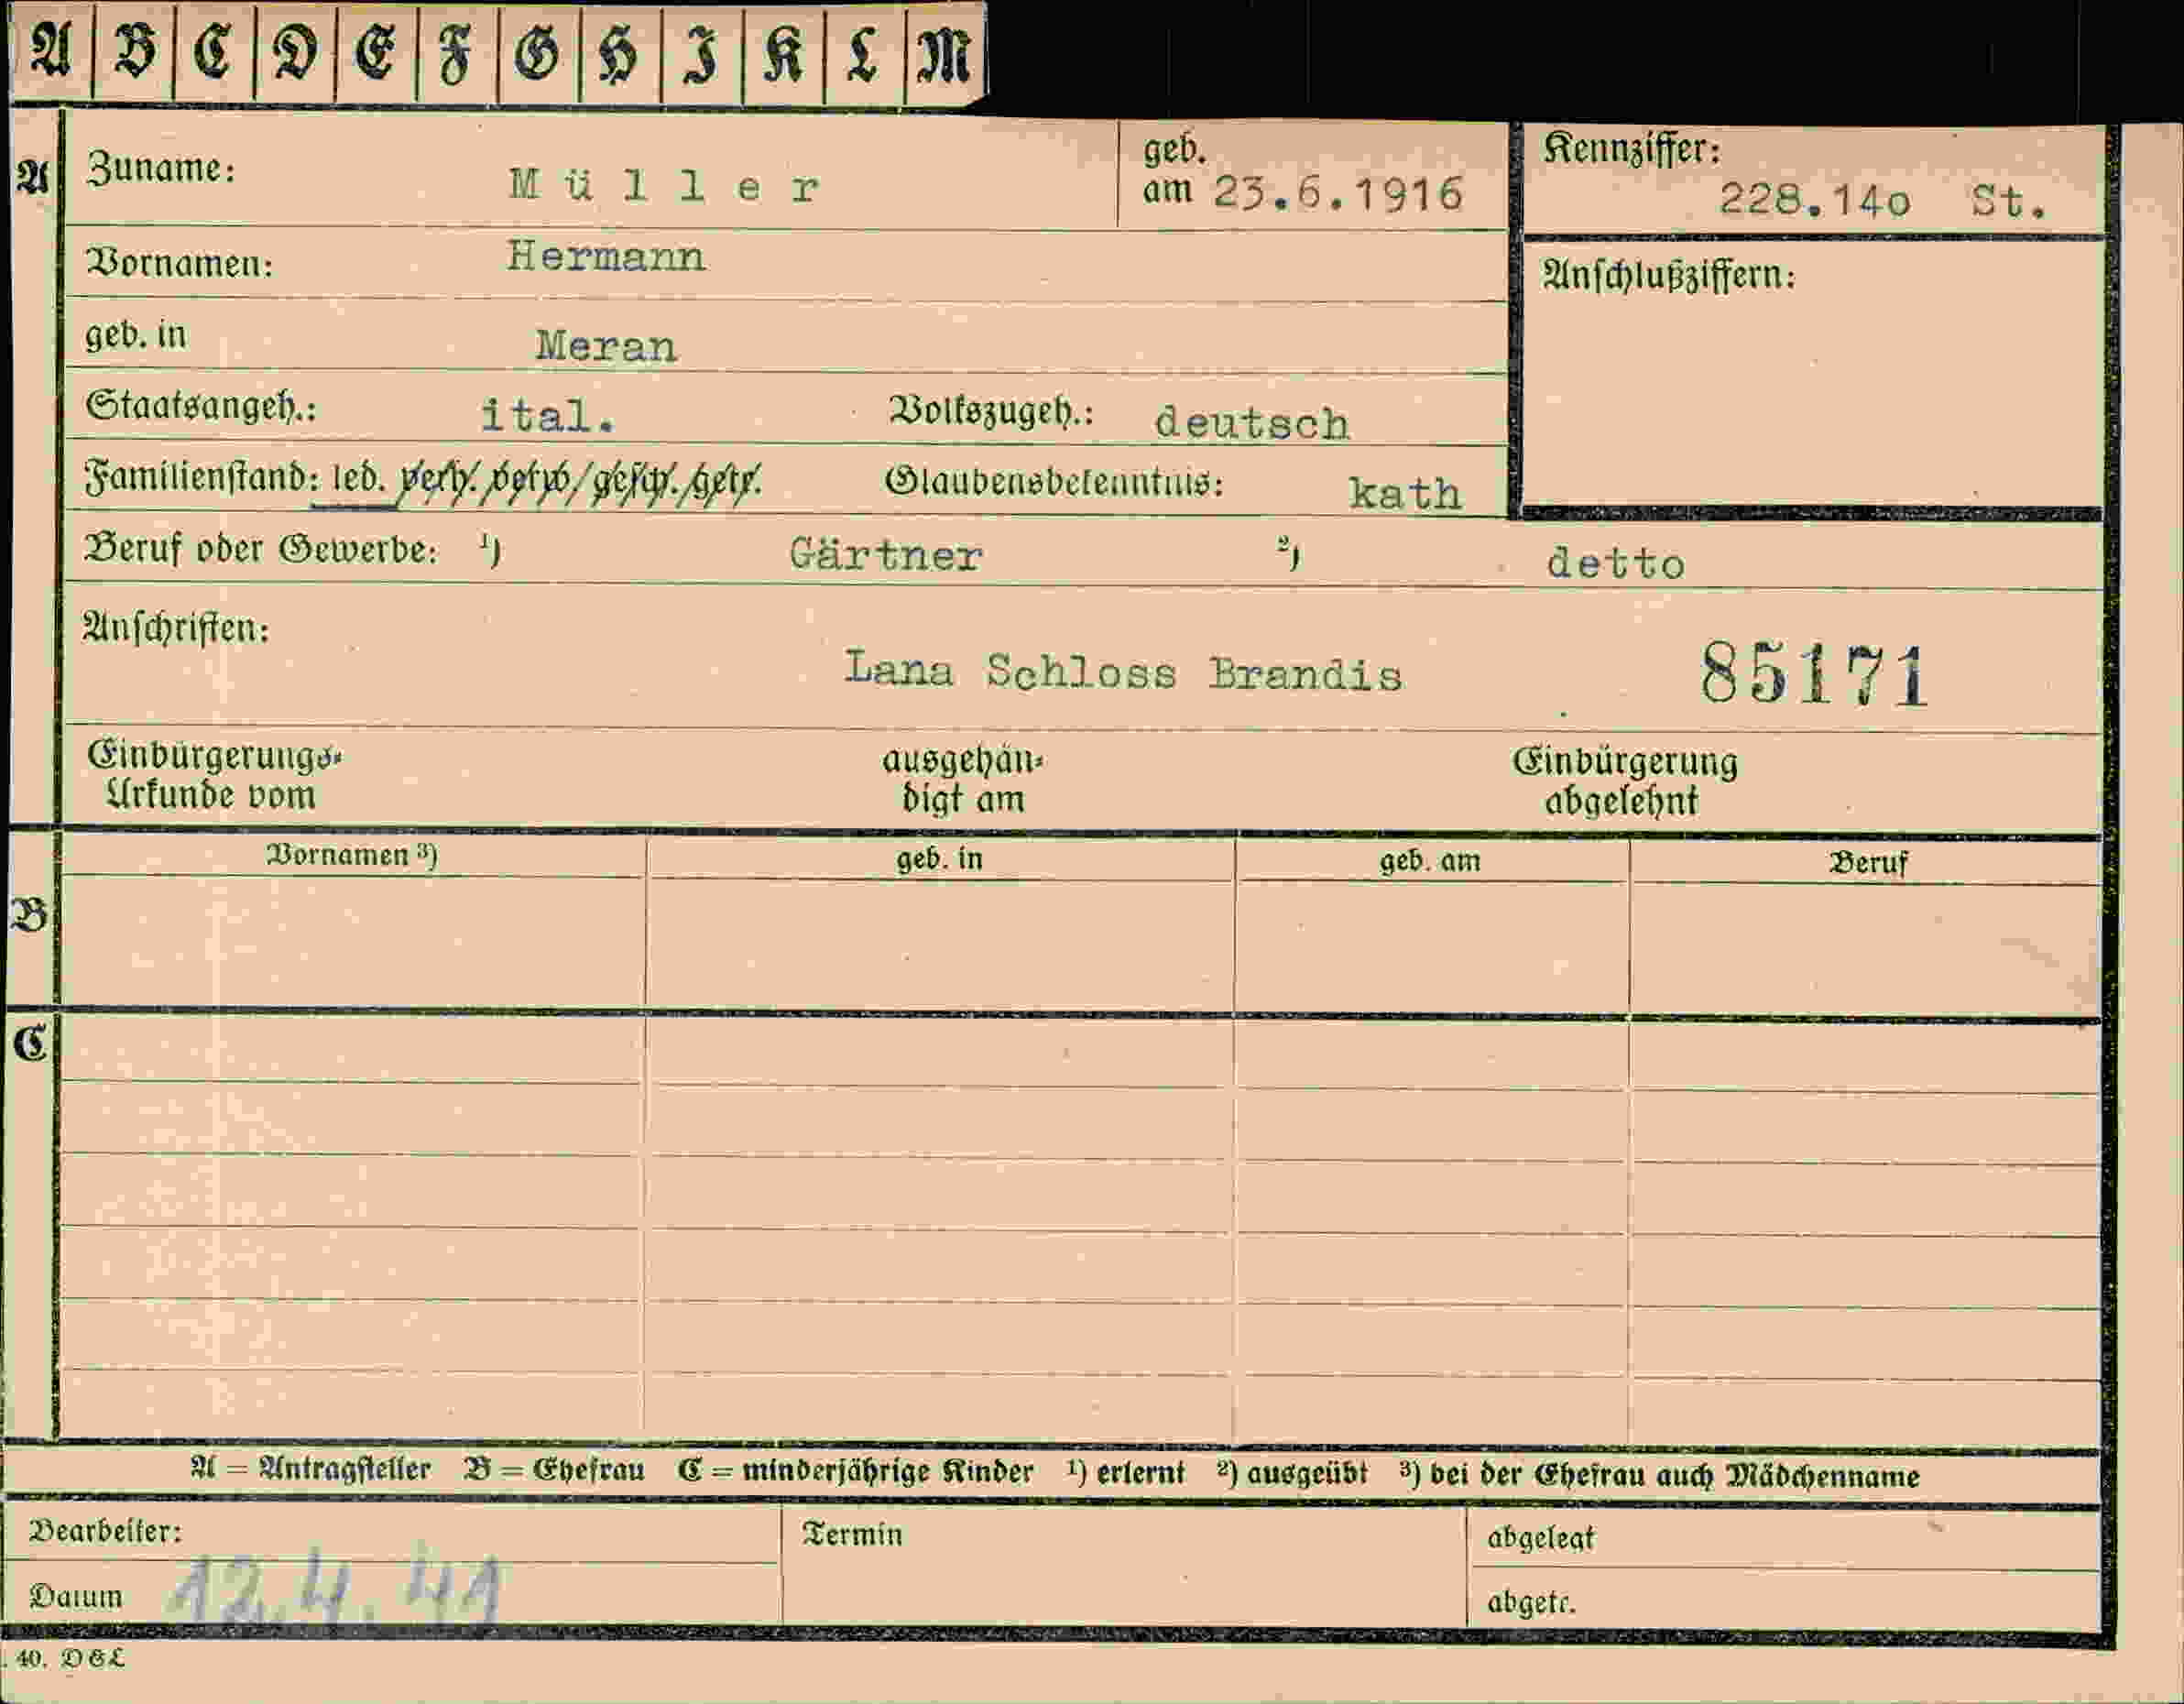 A B C D E F G H I K L M
A Zuname: Müller geb. am 23.6.1916 Kennziffer: 228.14o St.
Vornamen: Hermann Anschlußziffern:
geb. in Meran
Staatsangeh.: ital. Volkszugeh.: deutsch
Familienstand: led. verh. verw. gesch. getr. Glaubensbekenntnis: kath
Beruf oder Gewerbe: 1) Gärtner 2) detto
Anschriften:
Lana Schloss Brandis 85171
Einbürgerungs-Urkunde vom ausgehändigt am Einbürgerung abgelehnt
Vornamen 3) geb. in geb. am Beruf
B
C
A = Antragsteller B = Ehefrau C = minderjährige Kinder 1) erlernt 2) ausgeübt 3) bei der Ehefrau auch Mädchenname
Bearbeiter: Termin abgelegt
Datum 12.4.41 abgetr.
40. DGL